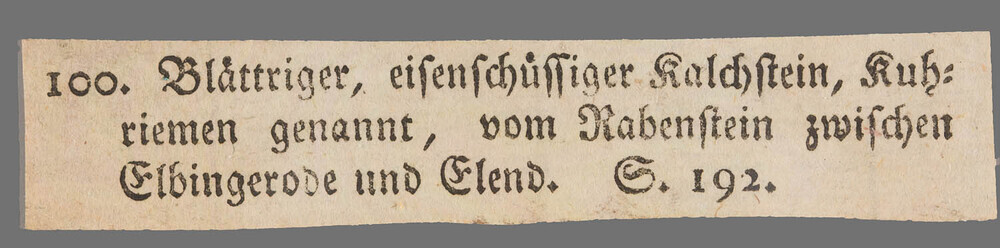 100. Blättriger, eisenschüssiger Kalchstein, Kuh-
riemen genannt, vom Rabenstein zwischen
Elbingerode und Elend. S. 192.